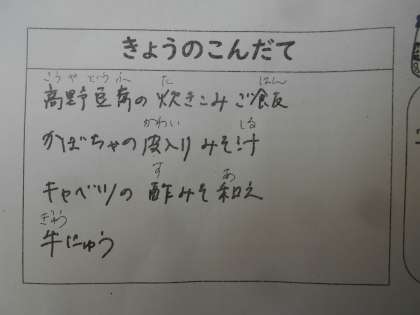 きょうのこんだて
こうやどうふ た はん
高野豆腐の炊きこみご飯
かわい しる
かぼちゃの皮入りみそ汁
す あ
キャベツの酢みそ和え
ぎゅう
牛にゅう